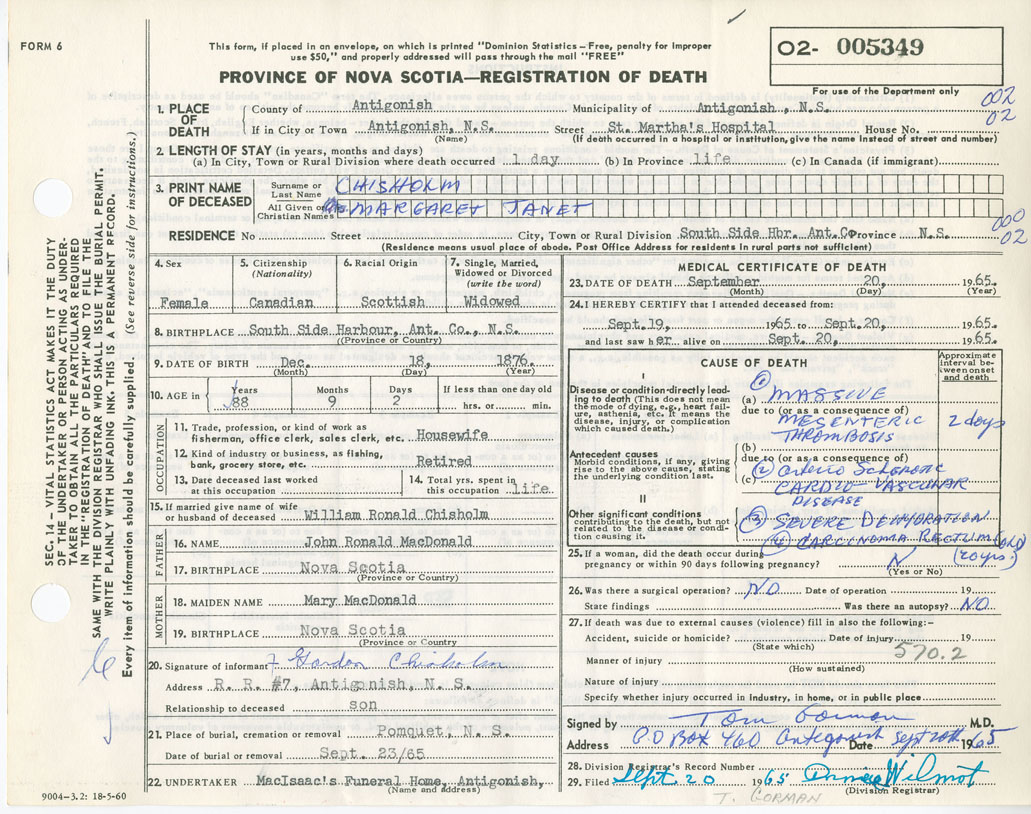 FORM 6
This form, if placed in an envelope, on which is printed "Dominion Statistics – Free, penalty for Improper
use $50," and properly addressed will pass through the mail "FREE"
PROVINCE OF NOVA SCOTIA—REGISTRATION OF DEATH
O2- 005349
For use of the Department only
002
02
1. PLACE OF DEATH
County of Antigonish Municipality of Antigonish, N.S.
If in City or Town Antigonish, N.S. Street St. Martha's Hospital House No.
(Name) (If death occurred in a hospital or institution, give the name instead of street and number)
2. LENGTH OF STAY (in years, months and days)
(a) In City, Town or Rural Division where death occurred 1 day (b) In Province life (c) In Canada (if immigrant)
3. PRINT NAME OF DECEASED
Surname or Last Name CHISHOLM
All Given or Christian Names MARGARET JANET
000
02
RESIDENCE No Street City, Town or Rural Division South Side Hbr. Ant.Co Province N.S.
(Residence means usual place of abode. Post Office Address for residents in rural parts not sufficient)
4. Sex
Female
5. Citizenship
(Nationality)
Canadian
6. Racial Origin
Scottish
7. Single, Married,
Widowed or Divorced
(write the word)
Widowed
8. BIRTHPLACE South Side Harbour, Ant. Co., N.S.
(Province or Country)
9. DATE OF BIRTH Dec. 18, 1876.
(Month) (Day) (Year)
10. AGE in Years 88 Months 9 Days 2 If less than one day old
hrs. or min.
OCCUPATION
11. Trade, profession, or kind of work as
fisherman, office clerk, sales clerk, etc. Housewife
12. Kind of industry or business, as fishing,
bank, grocery store, etc. Retired
13. Date deceased last worked
at this occupation
14. Total yrs. spent in
this occupation life
15. If married give name of wife
or husband of deceased William Ronald Chisholm
FATHER
16. NAME John Ronald MacDonald
17. BIRTHPLACE Nova Scotia
(Province or Country)
MOTHER
18. MAIDEN NAME Mary MacDonald
19. BIRTHPLACE Nova Scotia
(Province or Country
20. Signature of informant Gordon Chisholm
Address R. R. #7, Antigonish, N. S.
Relationship to deceased son
21. Place of burial, cremation or removal Pomquet, N. S.
Date of burial or removal Sept. 23/65
22. UNDERTAKER MacIsaac's Funeral Home, Antigonish,
(Name and address)
MEDICAL CERTIFICATE OF DEATH
23. DATE OF DEATH September 20, 1965.
(Month) (Day) (Year)
24. I HEREBY CERTIFY that I attended deceased from:
Sept.19, 1965 to Sept.20, 1965.
and last saw her alive on Sept. 20, 1965.
CAUSE OF DEATH
Approximate
interval be-
tween onset
and death
I
Disease or condition directly lead-
ing to death (This does not mean
the mode of dying, e.g., heart fail-
ure, asthenia, etc. It means the
disease, injury, or complication
which caused death.)
(a) (1) MASSIVE
due to (or as a consequence of)
MESENTERIC
THROMBOSIS
2 days
Antecedent causes
Morbid conditions, if any, giving
rise to the above cause, stating
the underlying condition last.
(b)
due to (or as a consequence of)
(c) (2) Arterio Sclerotic
CARDIO-VASCULAR
DISEASE
II
Other significant conditions
contributing to the death, but not
related to the disease or condi-
tion causing it.
(3) SEVERE DEHYDRATION
(4) CARCINOMA RECTUM (old)
25. If a woman, did the death occur during
pregnancy or within 90 days following pregnancy? N
(Yes or No)
26. Was there a surgical operation? NO Date of operation 19
State findings Was there an autopsy? NO
27. If death was due to external causes (violence) fill in also the following:–
Accident, suicide or homicide? Date of injury 19
(State which)
570.2
Manner of injury
(How sustained)
Nature of injury
Specify whether injury occurred in industry, in home, or in public place
Signed by Tom Gorman M.D.
Address P.O Box 460 Antigonish Date Sept 20th 1965
28. Division Registrar's Record Number
29. Filed Sept. 20 1965 Wilmot
(Division Registrar)
T. GORMAN
9004–3.2: 18-5-60
SEC. 14 – VITAL STATISTICS ACT MAKES IT THE DUTY
OF THE UNDERTAKER OR PERSON ACTING AS UNDER-
TAKER TO OBTAIN ALL THE PARTICULARS REQUIRED
IN THE "REGISTRATION OF DEATH" AND TO FILE THE
SAME WITH THE DIVISION REGISTRAR WHO SHALL ISSUE THE BURIAL PERMIT.
WRITE PLAINLY WITH UNFADING INK. THIS IS A PERMANENT RECORD.
Every item of information should be carefully supplied. (See reverse side for instructions.)